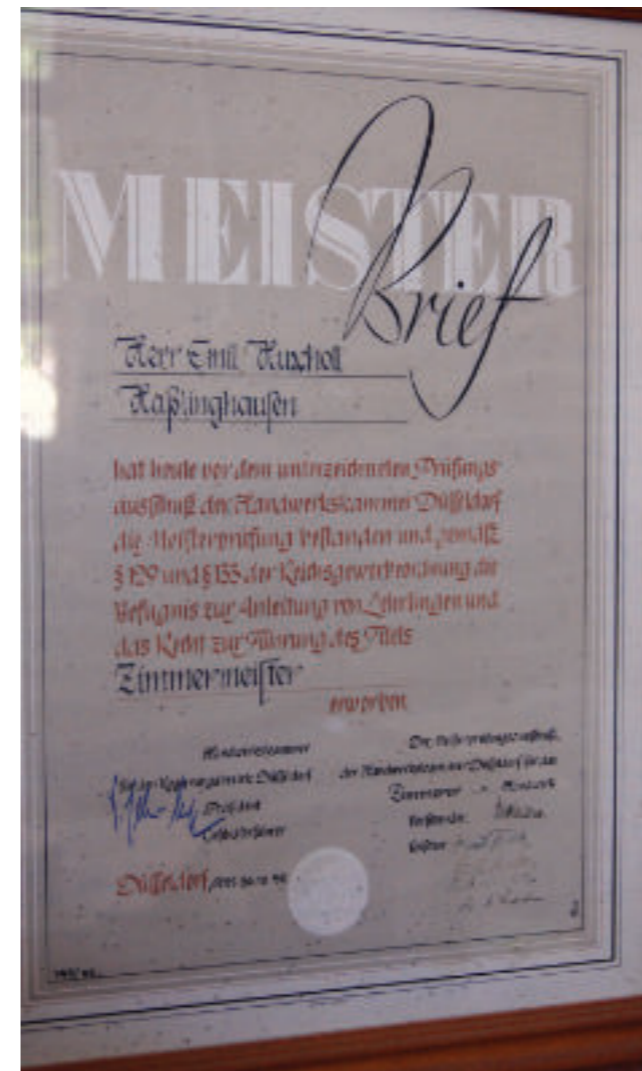 MEISTER
Brief
Herr Emil Huxholl
Haßlinghausen
hat heute vor dem unterzeichneten Prüfungs
ausschuß der Handwerkskammer Düsseldorf
die Meisterprüfung bestanden und gemäß
§ 129 und § 133 der Reichsgewerbeordnung die
Befugnis zur Anleitung von Lehrlingen und
das Recht zur Führung des Titels
Zimmermeister
erworben
Handwerkskammer
für den Regierungsbezirk Düsseldorf
Präsident
Geschäftsführer
Der Meisterprüfungsausschuß
der Handwerkskammer Düsseldorf für das
Zimmerer - Handwerk
Vorsitzender
Beisitzer
Düsseldorf, den